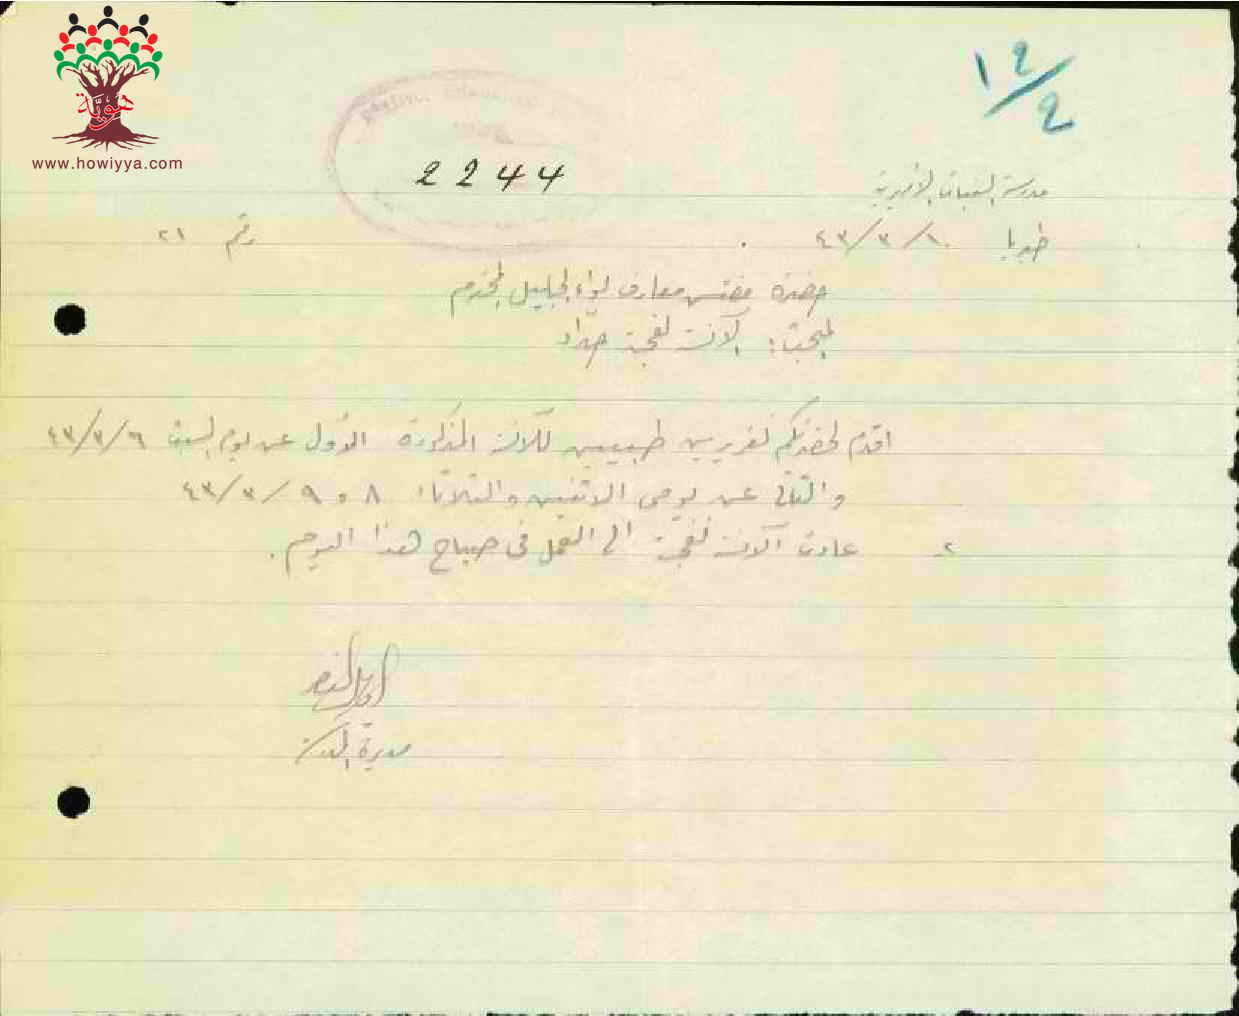 هويّة
www.howiyya.com
١٢/٢
District Education
2244
مدرسة البنات الأميرية
طبريا ١٠/٣/٤٣
رقم ٢١
حضرة مفتش معارف لواء الجليل المحترم
المبحث: الآنسة
اقدم لحضرتكم تقريرين طبيين للآنسة المذكورة الأول عن يوم السبت ٤٣/٣/٦
والثاني عن يومي الاثنين والثلاثاء ٨ و ٩/٣/٤٣
٢- عادت الآنسة الى العمل في صباح هذا اليوم.
مديرة المدرسة